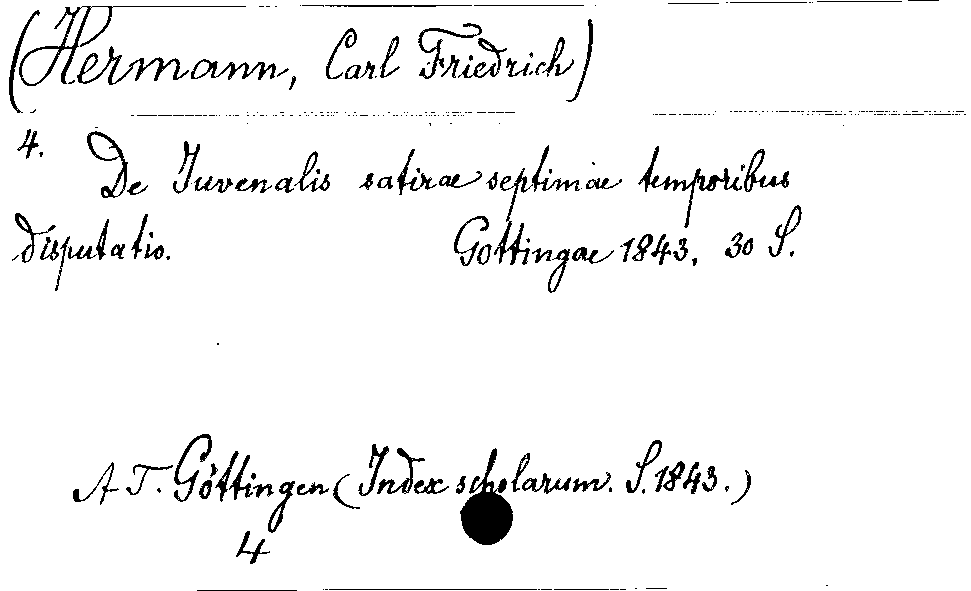 (Hermann, Carl Friedrich)
4. De Iuvenalis satirae septimae temporibus
disputatio. Gottingae 1843, 30 S.
AT. Göttingen (Index scholarum. S. 1843.)
4